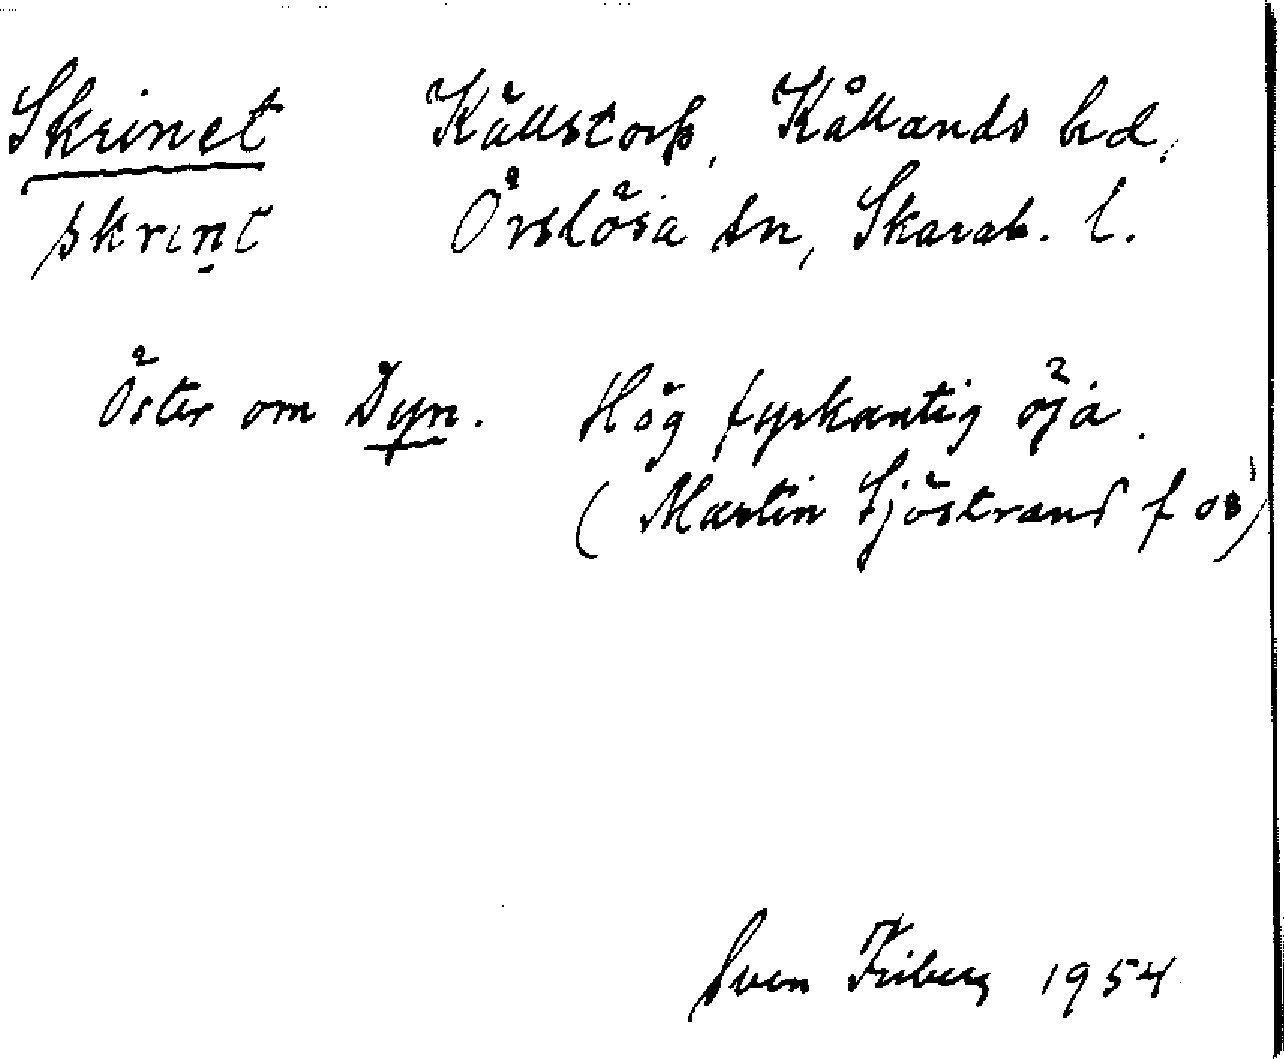 Skrinet Källstorp, Kållands hd,
skrin̥t Örslösa sn, Skarab. l.
Öster om Dyn. Hög fyrkantig öja.
(Martin Sjöstrand f 08)
Sven Friberg 1954